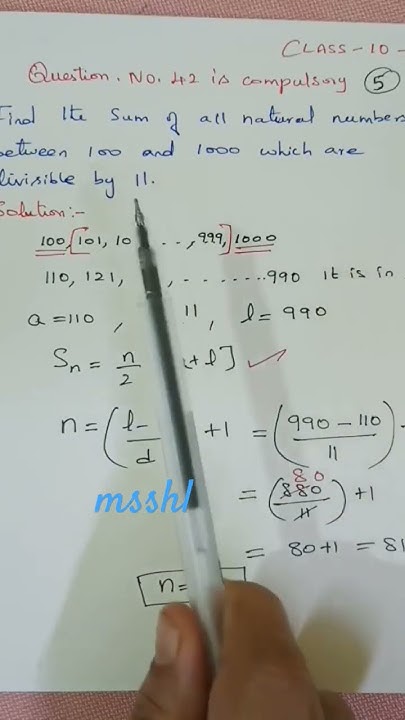 CLASS-10-
Question. No. 42 is compulsory 5
Find the Sum of all natural numbers
between 100 and 1000 which are
divisible by 11.
Solution:-
100, [101, 10 . . , 999,] 1000
110, 121, , ........990 it is in
a = 110 , 11 , l = 990
Sn = n/2 + l]
n = (l- / d +1 = (990 - 110 / 11)
= (880 / 11) + 1 80
msshl
= 80+1 = 81
n =